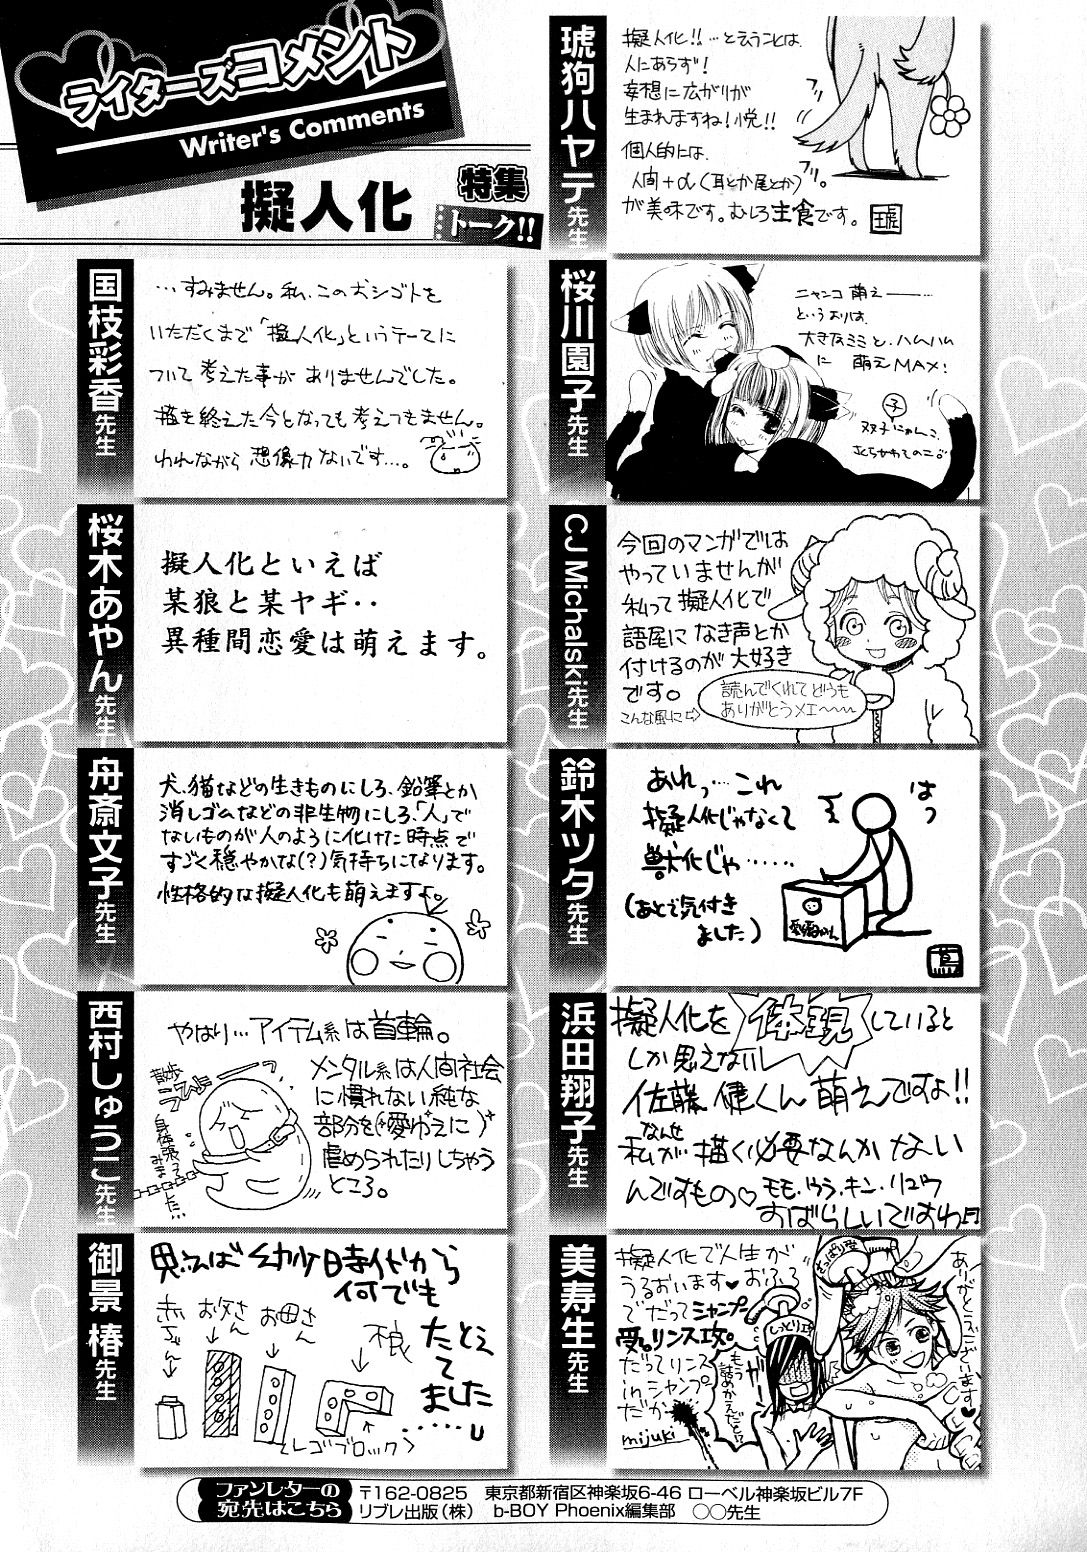 ライターズコメント
Writer's Comments
擬人化
特集
トーク!!
琥狗ハヤテ先生
擬人化!!…と言うことは、
人にあらず!
妄想に広がりが
生まれますね!悦!!
個人的には、
人間+α(耳とか尾とか)
が美味です。むしろ主食です。
国枝彩香先生
…すみません。私、このおシゴトを
いただくまで「擬人化」というテーマに
ついて考えた事がありませんでした。
描き終えた今となっても考えつきません。
われながら想像力ないです…。
桜川園子先生
ニャンコ萌え――…
というよりは、
大きなミミと、ハムハム
に萌えMAX!
子
双子にゃんこ、
桜木あやん先生
擬人化といえば
某狼と某ヤギ‥
異種間恋愛は萌えます。
CJ Michalski先生
今回のマンガでは
やっていませんが
私って擬人化で
語尾になき声とか
付けるのが大好き
です。
こんな風に⇨
読んでくれてどうも
ありがとうメェ〜〜〜
舟斎文子先生
犬、猫などの生きものにしろ、鉛筆とか
消しゴムなどの非生物にしろ、「人」で
ないものが人のように化けた時点で
すごく穏やかな(?)気持ちになります。
性格的な擬人化も萌えますよ。
鈴木ツタ先生
あれっ…これ
擬人化じゃなくて
獣化じゃ……
(あとで気付き
ました)
はっ
蔦
西村しゅうこ先生
やはり…アイテム系は首輪。
メンタル系は人間社会
に慣れない純な
部分を(愛ゆえに)
虐められたりしちゃう
ところ。
浜田翔子先生
擬人化を体現していると
しか思えない
佐藤健くん萌えですよ!!
なんせ
私が描く必要なんかない
んですもの♡モモ・ウラ・キン・リュウ
すばらしいですわ♬
御景椿先生
思えば幼少時代から
何でも
たとえ
てました
……
赤ちゃん
お父さん
お母さん
狼
〈レゴブロック〉
美寿生先生
擬人化で人生が
うるおいます♥おふろ
でだってシャンプー
受。リンス攻。
だってリンス
inシャンプー
だから
mijuki
さっぱり受
しっとり攻
もう
詰めかえだと!?
ありがとうございます♥
ファンレターの
宛先はこちら
〒162-0825 東京都新宿区神楽坂6-46 ローベル神楽坂ビル7F
リブレ出版(株) b-BOY Phoenix編集部 ○○先生